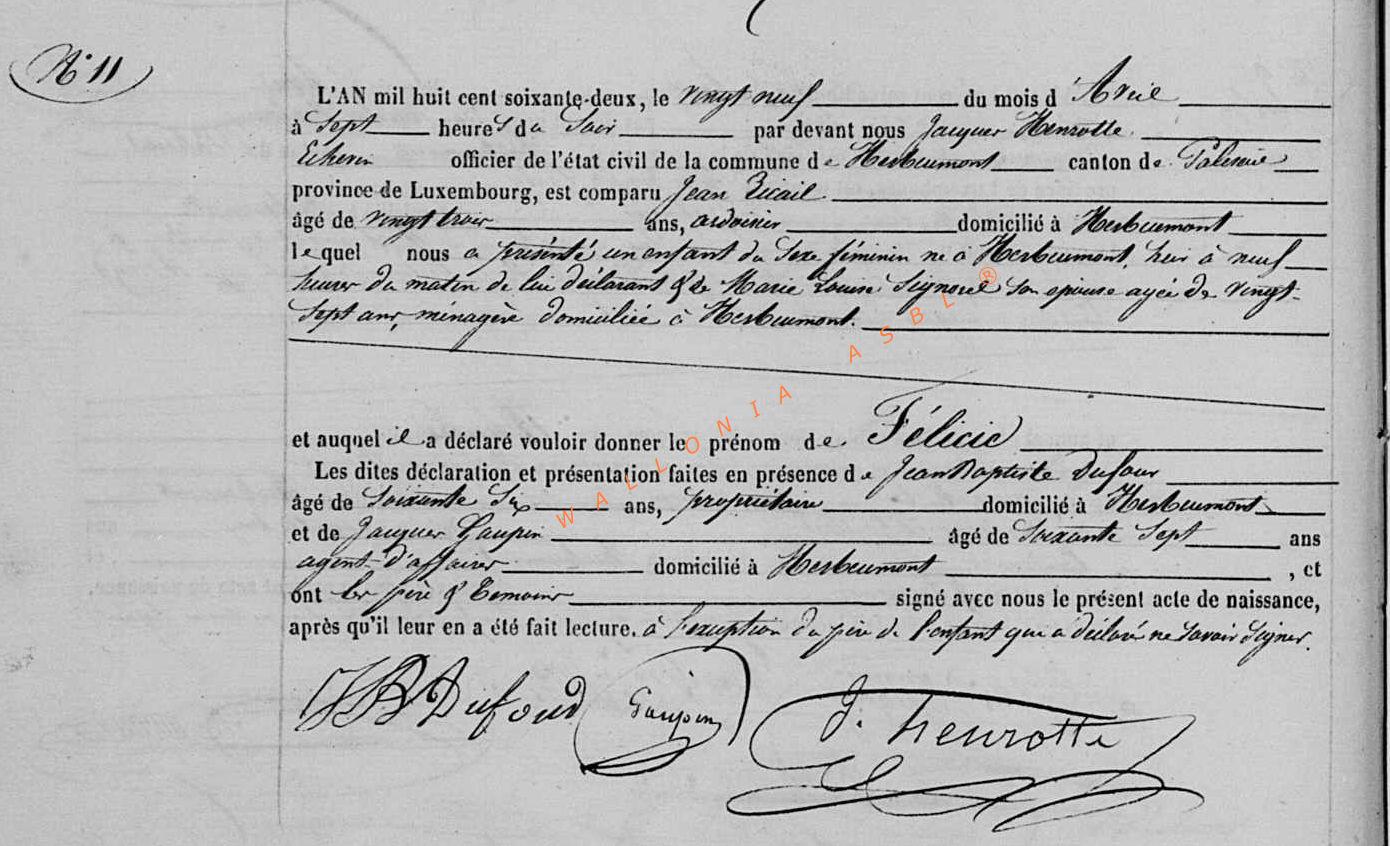 N° 11
L'AN mil huit cent soixante-deux, le vingt neuf du mois d'Avril
à Sept heures du Soir par devant nous Jacques Henrotte
Echevin officier de l'état civil de la commune de Herbeumont canton de Paliseul
province de Luxembourg, est comparu Jean
âgé de vingt trois ans, ardoisier domicilié à Herbeumont
lequel nous a présenté un enfant du Sexe féminin né à Herbeumont, hier à neuf
heures du matin de lui déclarant & de Marie Louise son épouse agée de vingt-
Sept ans, ménagère domiciliée à Herbeumont.
et auquel il a déclaré vouloir donner le prénom de Félicie
Les dites déclaration et présentation faites en présence de Jean Baptiste Dufour
âgé de Soixante Six ans, propriétaire domicilié à Herbeumont
et de Jacques Gaupin âgé de Soixante Sept ans
agent d'affaires domicilié à Herbeumont, et
ont les père & témoins signé avec nous le présent acte de naissance,
après qu'il leur en a été fait lecture. à l'exception du père de l'enfant qui a déclaré ne Savoir Signer.
JB Dufour Gaupin J. henrotte
WALLONIA ASBL ®